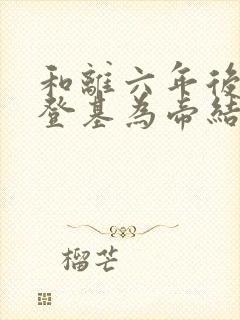 和離六年後
登基為帝結
榴芒